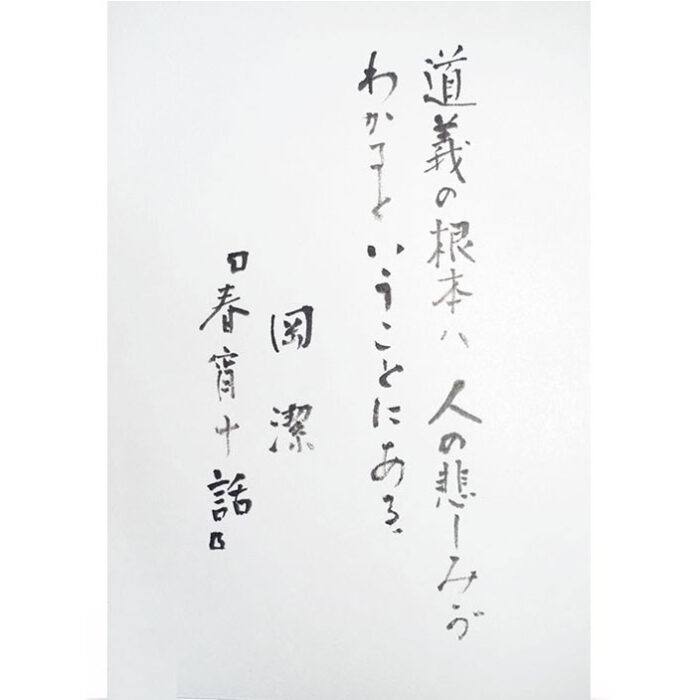 道義の根本ハ 人の悲しみが
わかるといういうことにある、
岡潔
『春宵十話』